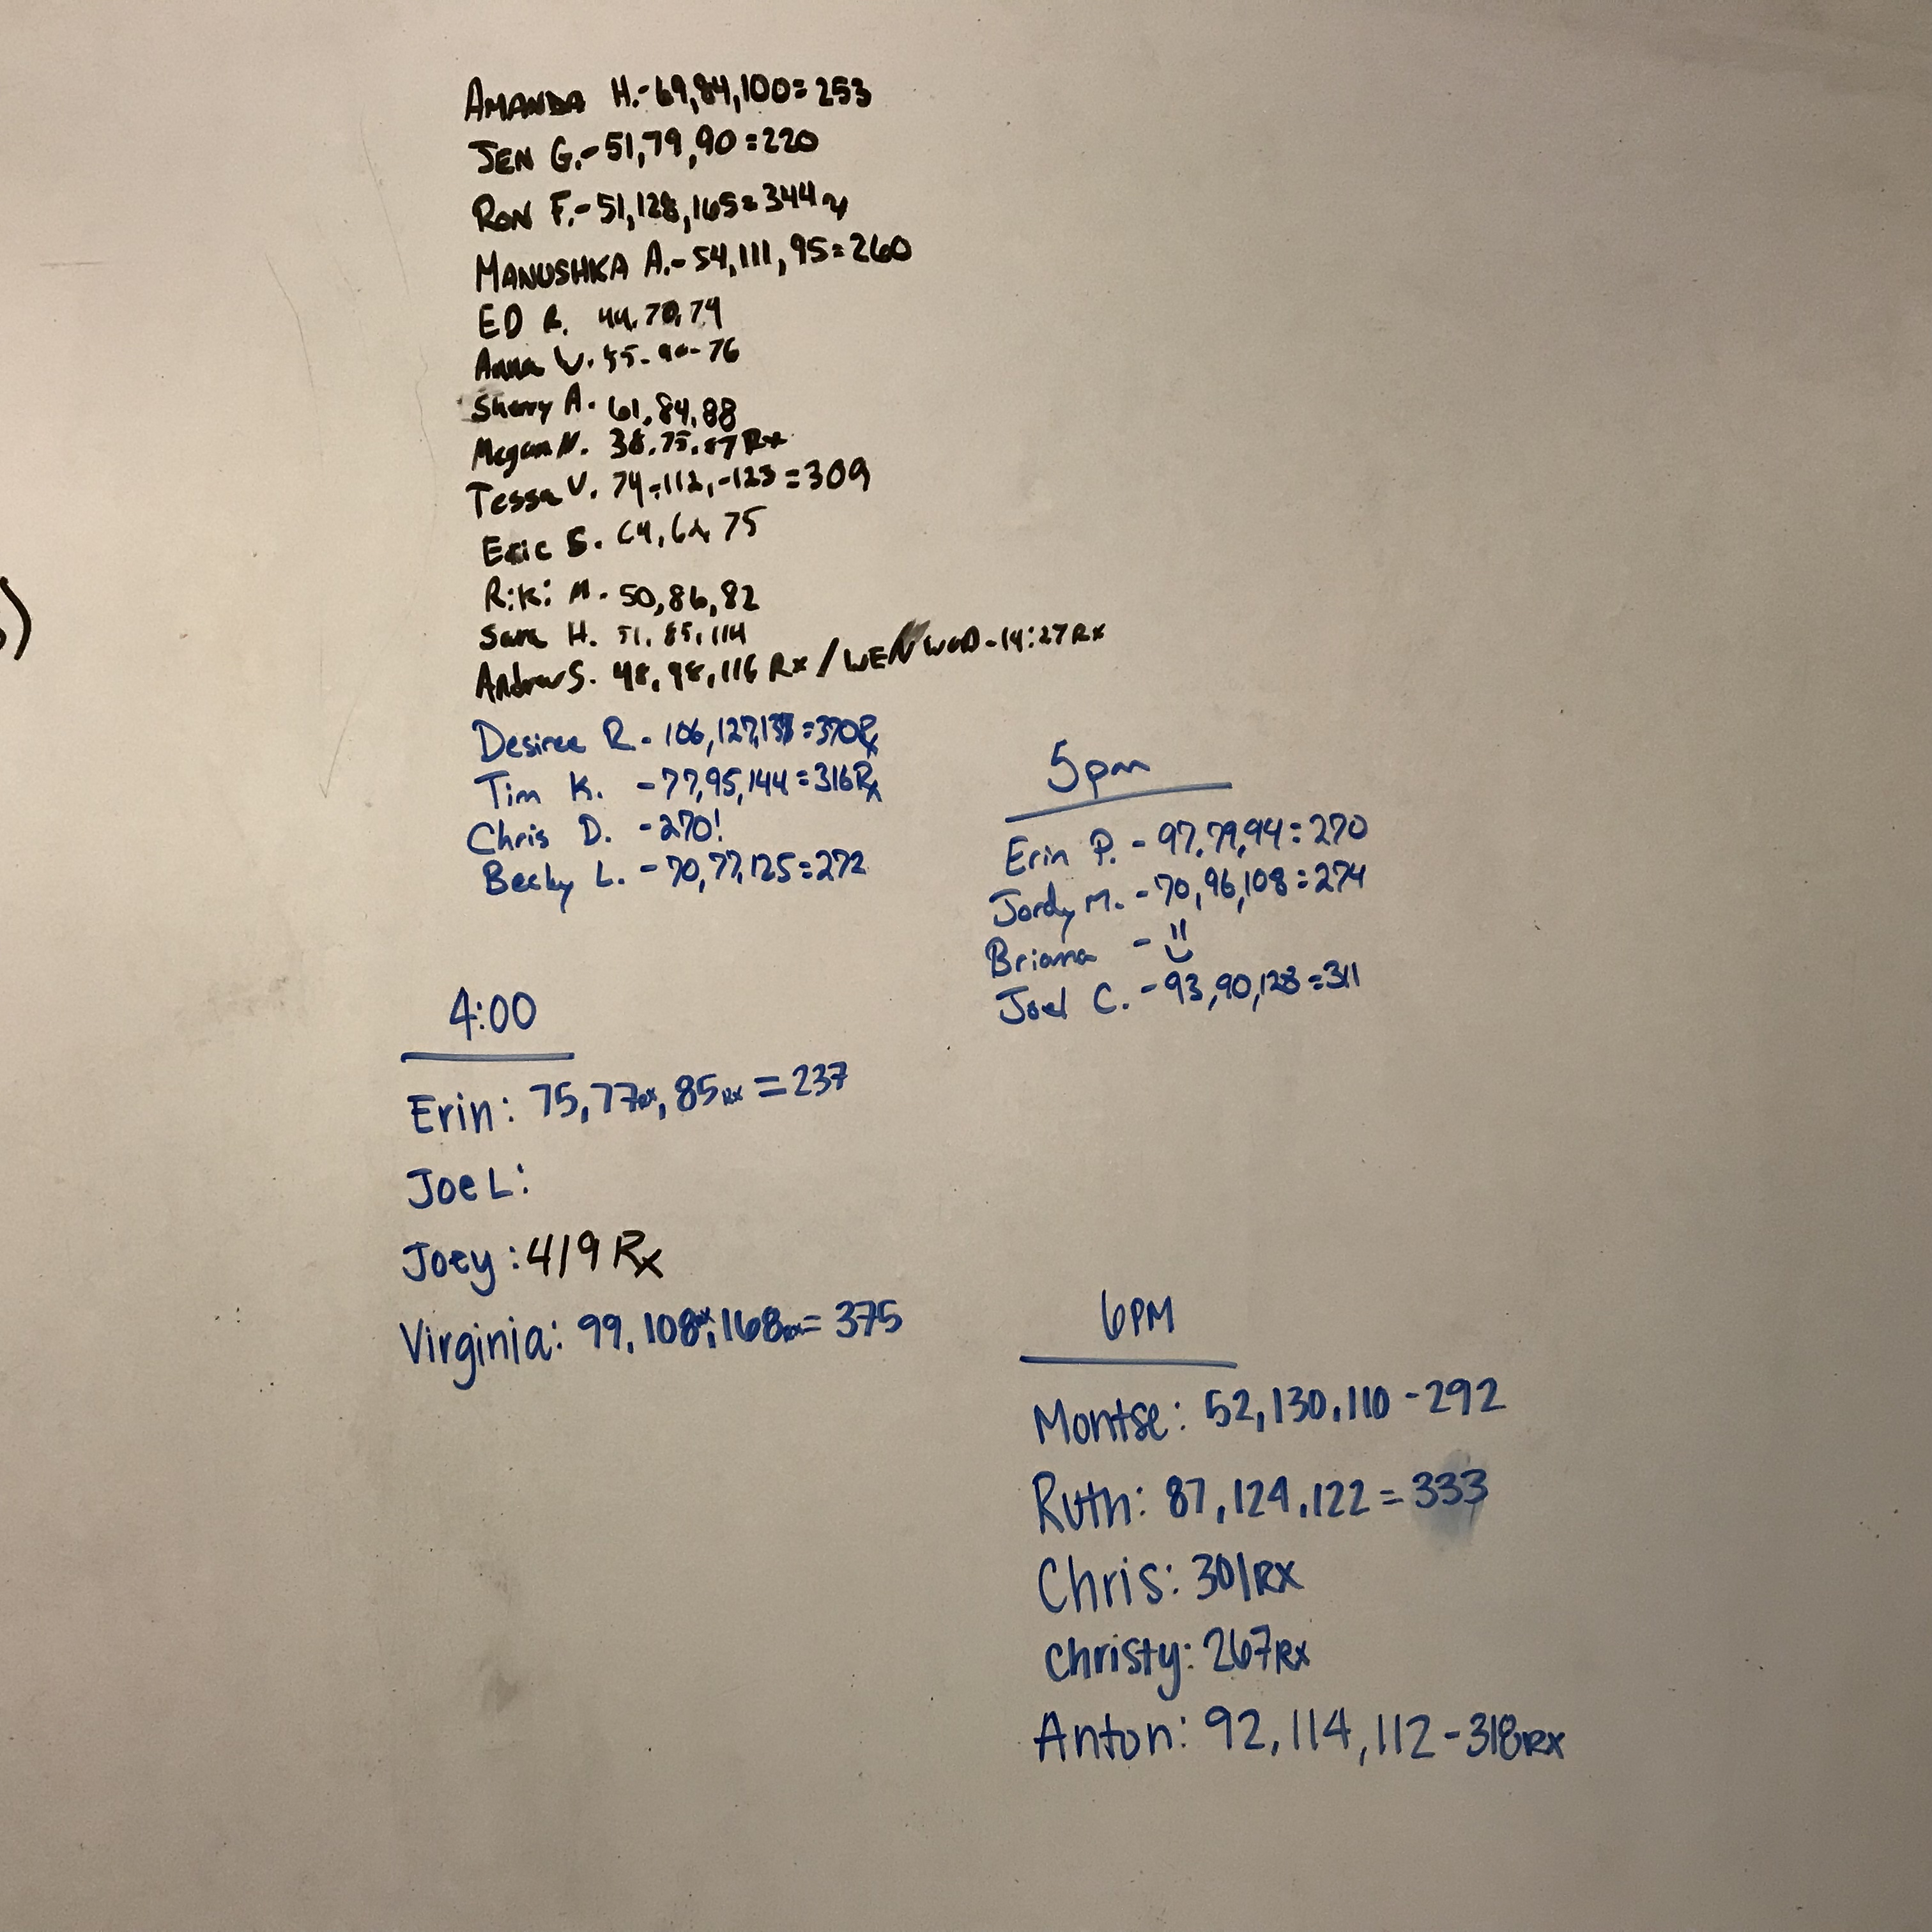 AMANDA H.-69,84,100=253
JEN G.-51,79,90=220
RON F.-51,128,165=344
MANUSHKA A.-54,111,95=260
ED R. 44,70,74
Anna V. 55-90-76
Sherry A. 61,84,88
Megan N. 38,75,87 Rx
Tessa V. 74-112,-123=309
Eric S. 64,62,75
Riki M. 50,86,82
Sara H. 51,85,114
Andrew S. 48,98,116 Rx / WEN WOD-14:27 Rx
Desiree R.-106,127,137=370Rx
Tim K. -77,95,144=316Rx
Chris D. -270!
Becky L. -70,77,125=272
5pm
Erin P. -97,79,94=270
Jordy M. -70,96,108=274
Briana -
Joel C. -93,90,128=311
4:00
Erin: 75,77Rx,85Rx=237
Joe L:
Joey: 419 Rx
Virginia: 99,108Rx,168Rx=375
6PM
Montse: 52,130,110-292
Ruth: 87,124,122=333
Chris: 301RX
Christy: 267RX
Anton: 92,114,112-318RX